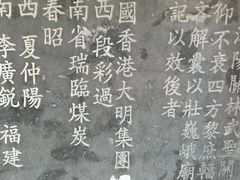 仰不衰四方黎庶輻
吝解囊以壯巍峨廟
記以效後者
國香港大明集團
西段彩過
南省瑞臨煤炭
春昭
西夏仲陽
南李廣銳福建